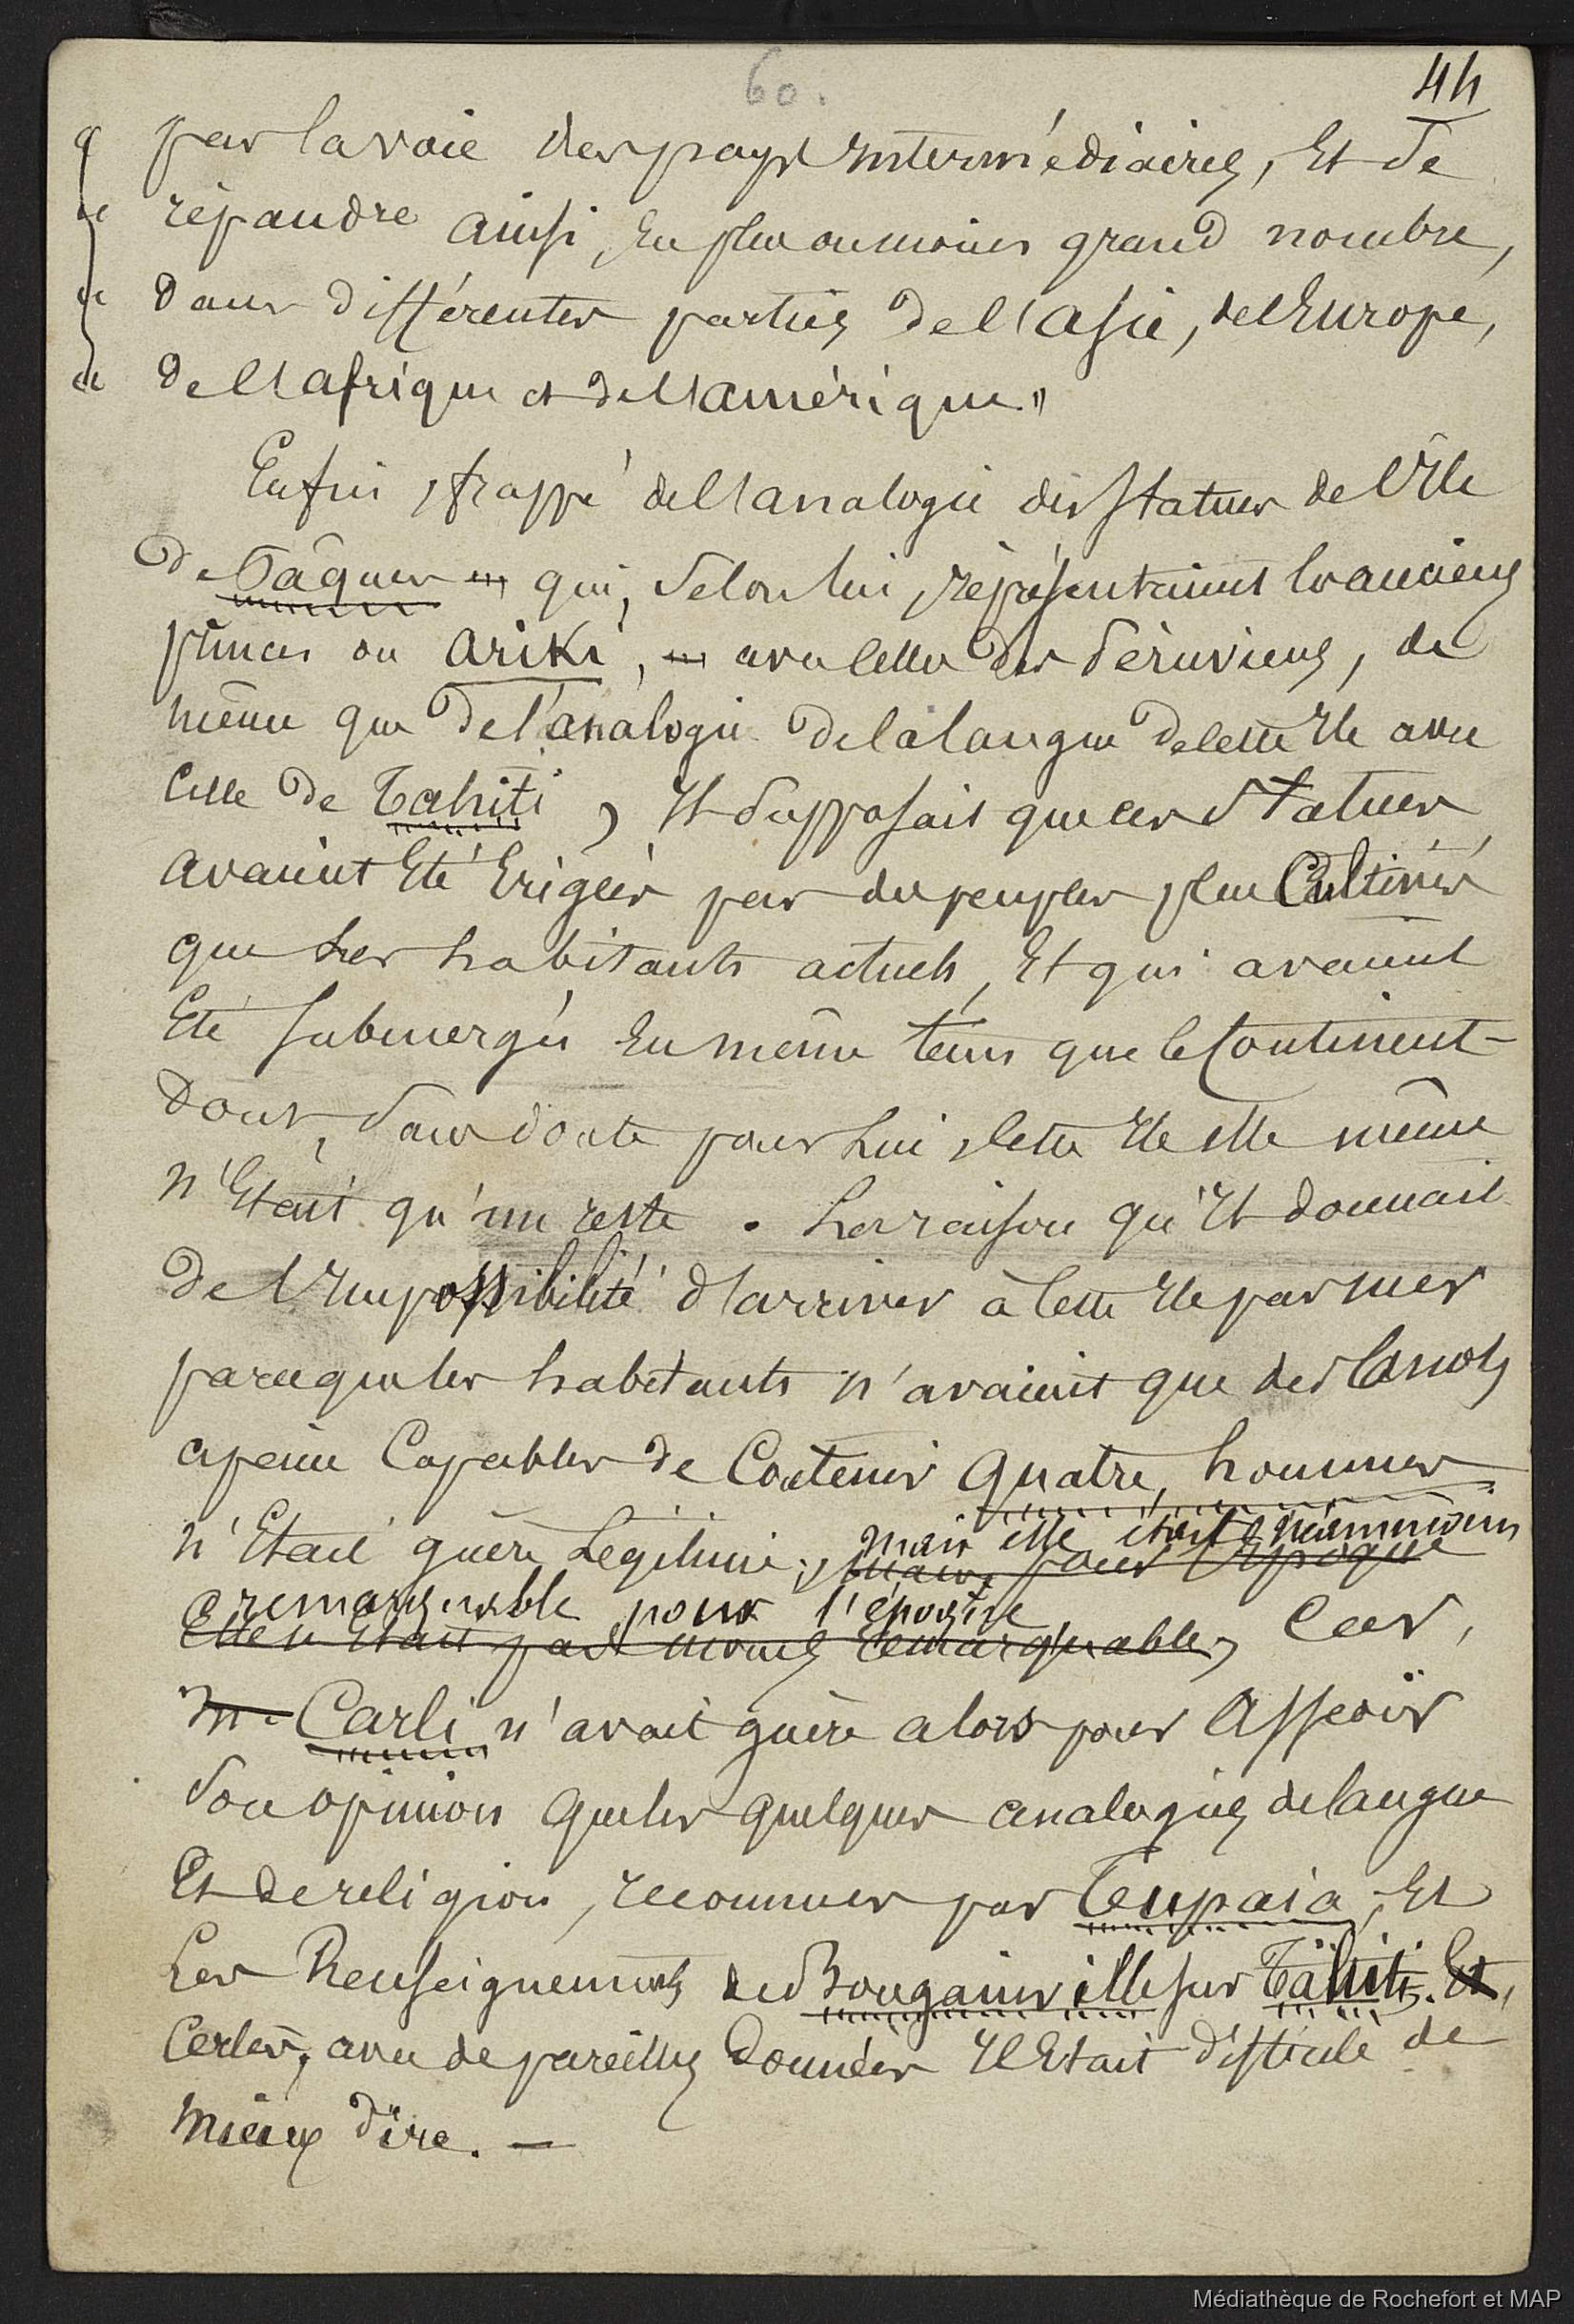 60.
44
par la voie des pays Intermédiaires, Et se
répandre ainsi, En plus ou moins grand nombre,
dans différentes parties de l'asie, de l'Europe,
de l'afrique et de l'amérique."
Enfin, frappé de l'analogie des statues de l'Ile
de Pâques — qui, selon lui, représentaient les anciens
princes ou Ariki, — avec celles des Péruviens, de
même que de l'analogie de la langue de cette Ile avec
celle de Tahiti, Il supposait que ces statues
avaient Eté Erigées par des peuples plus Cultivés
que Les habitants actuels, Et qui avaient
Eté submergés En même tems que le Continent
dont, sans doute pour Lui, cette Ile elle même
n'Etait qu'un reste. La raison qu'Il donnait
de l'Impossibilité d'arriver à cette Ile par mer
parce que les habitants n'avaient que des Canots
apeine Capables de Contenir quatre hommes
mais elle était néanmoins
n'Etait guère Légitime; mais, pour l'Epoque
remarquable pour l'époque
Elle n'Etait pas moins remarquable, Car,
M. Carli n'avait guère alors pour Asseoir
son opinion que les quelques analogies de langue
Et de religion, reconnues par Tupaia, Et
Les Renseignements de Bougainville sur Tahiti. Et,
Certes, avec de pareilles données Il Etait difficile de
mieux dire. —
Médiathèque de Rochefort et MAP